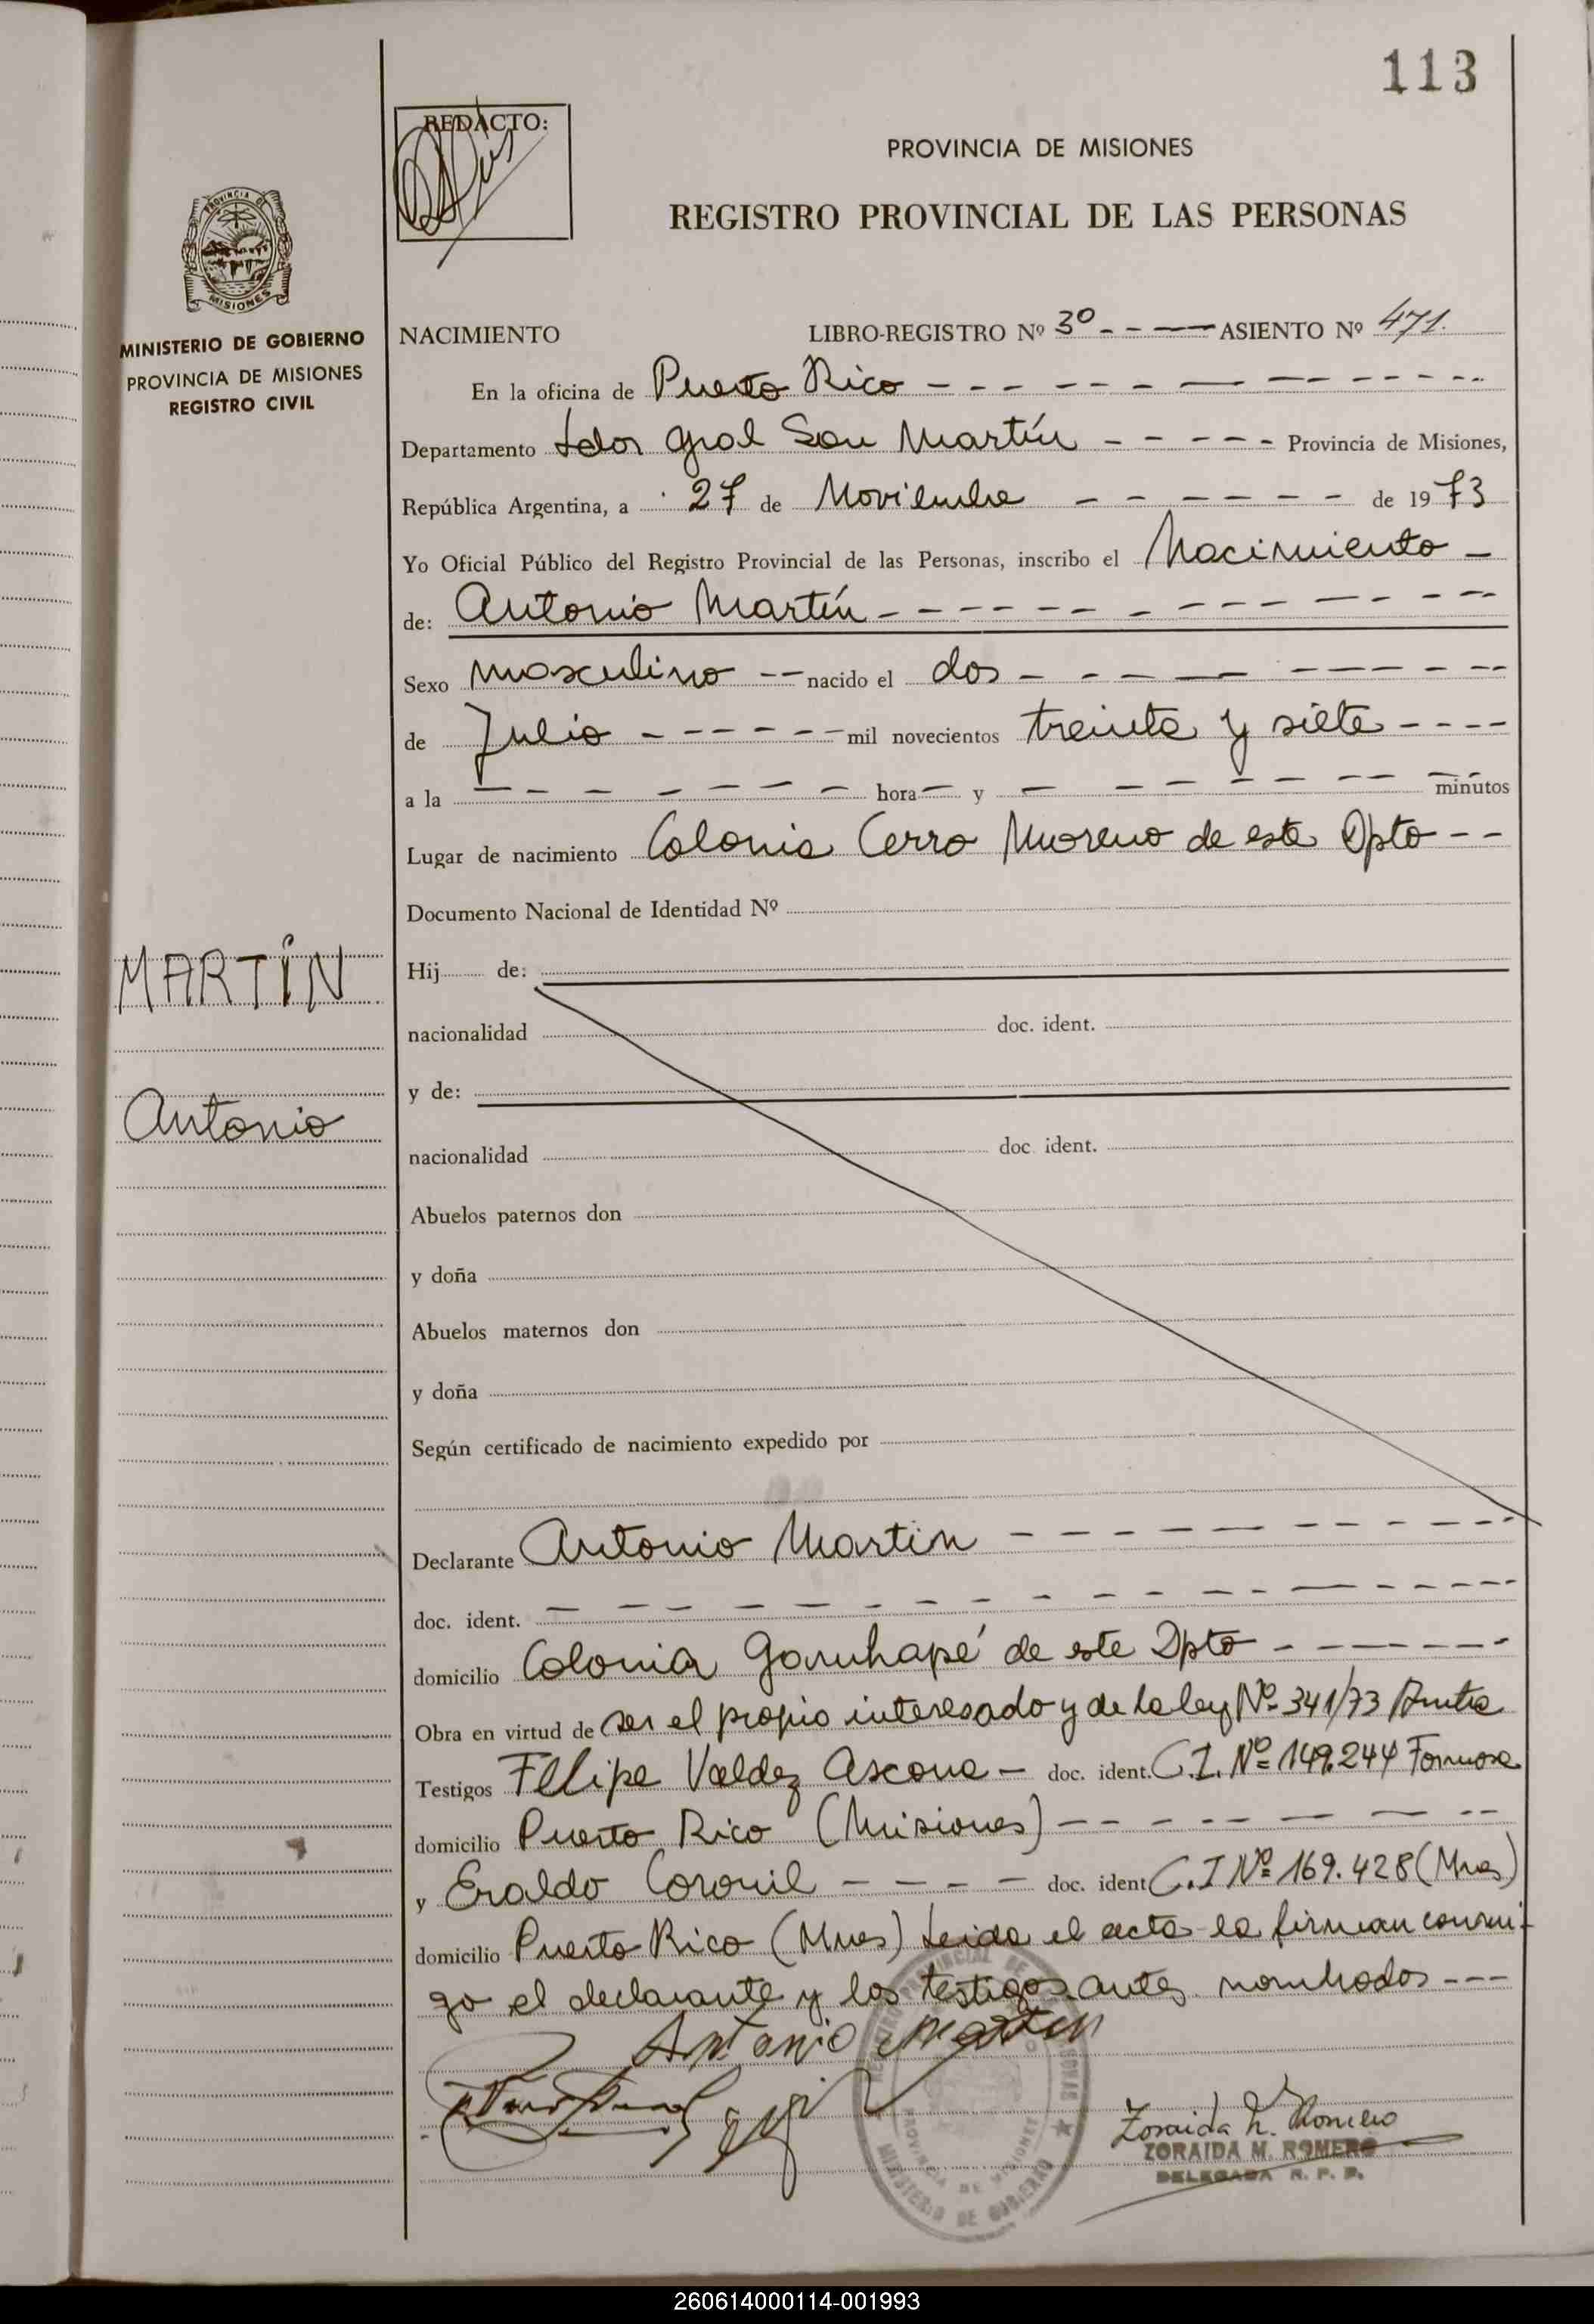 113
REDACTO:
PROVINCIA DE MISIONES
REGISTRO PROVINCIAL DE LAS PERSONAS
PROVINCIA DE
MISIONES
MINISTERIO DE GOBIERNO
PROVINCIA DE MISIONES
REGISTRO CIVIL
NACIMIENTO LIBRO-REGISTRO Nº 3º - - - ASIENTO Nº 471.
En la oficina de Puerto Rico
Departamento Ldor Gral San Martín Provincia de Misiones,
República Argentina, a 27 de Noviembre de 1973
Yo Oficial Público del Registro Provincial de las Personas, inscribo el Nacimiento
de: Antonio Martín
Sexo masculino nacido el dos
de Julio mil novecientos treinta y siete
a la hora y minutos
Lugar de nacimiento Colonia Cerro Moreno de este Dpto
Documento Nacional de Identidad Nº
MARTÍN
Antonio
Hij de:
nacionalidad doc. ident.
y de:
nacionalidad doc. ident.
Abuelos paternos don
y doña
Abuelos maternos don
y doña
Según certificado de nacimiento expedido por
Declarante Antonio Martin
doc. ident.
domicilio Colonia Garuhapé de este Dpto
Obra en virtud de ser el propio interesado y de la ley Nº 341/73
Testigos Felipe Valdez Ascona doc. ident. C.I. Nº 149.244 Formosa
domicilio Puerto Rico (Misiones)
y Eraldo Coronil doc. ident C.I Nº 169.428 (Mnes)
domicilio Puerto Rico (Mnes) Leida el acta la firman conmi-
go el declarante y los testigos antes nombrados
Antonio Martin
REGISTRO PROVINCIAL DE LAS PERSONAS
PROVINCIA DE MISIONES
MINISTERIO DE GOBIERNO
Zoraida M. Romero
ZORAIDA M. ROMERO
DELEGADA R. P. P.
260614000114-001993